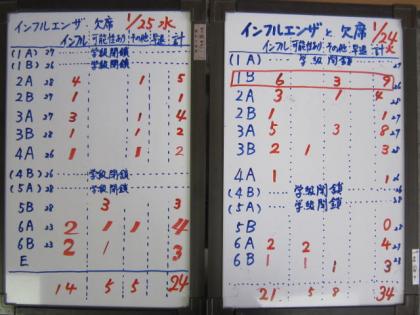 インフルエンザ 欠席 1/25 水
インフル 可能性あり その他 早退 計
(1A) 27 学級閉鎖
(1B) 26 学級閉鎖
2A 28 4 1 5
2B 27 1 1
3A 27 3 1 4
3B 28 1 1 2
4A 26 1 1 2
(4B) 26 学級閉鎖
(5A) 28 学級閉鎖
5B 28 3 3
6A 23 2 1 1 4
6B 23 2 1 3
E
14 5 5 24
インフルエンザと欠席 1/24 火
インフル 可能性あり その他 早退 計
(1A) 学級閉鎖 27
1B 6 3 9 26
2A 3 1 4
2B 1 1
3A 5 3 8
3B 2 1 3 28
4A 1 1 26
(4B) 学級閉鎖 26
(5A) 学級閉鎖 28
5B 0 28
6A 2 2 4
6B 1 1 1 3
21 5 8 34